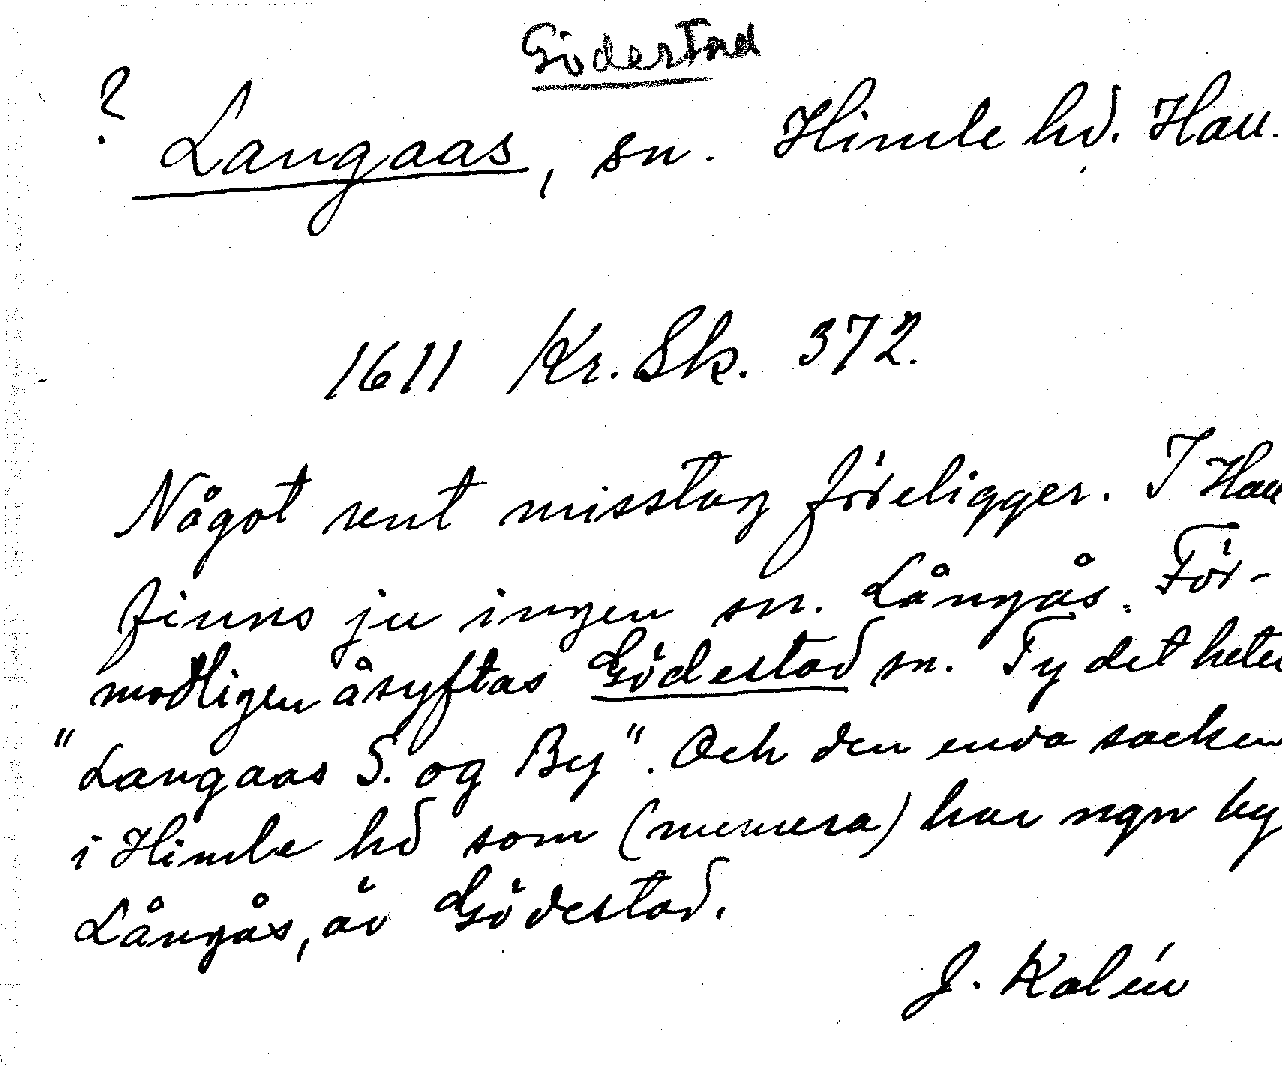 Gödestad
? Langaas, sn. Himle hd. Hall.
1611 Kr. Sk. 372.
Något rent misstag föreligger. I Hall
finns ju ingen sn. Långås. För-
modligen åsyftas Gödestad sn. Ty det heter
"Langaas S. og By". Och den enda socken
i Himle hd som (numera) har ngn by
Långås, är Gödestad.
J. Kalén